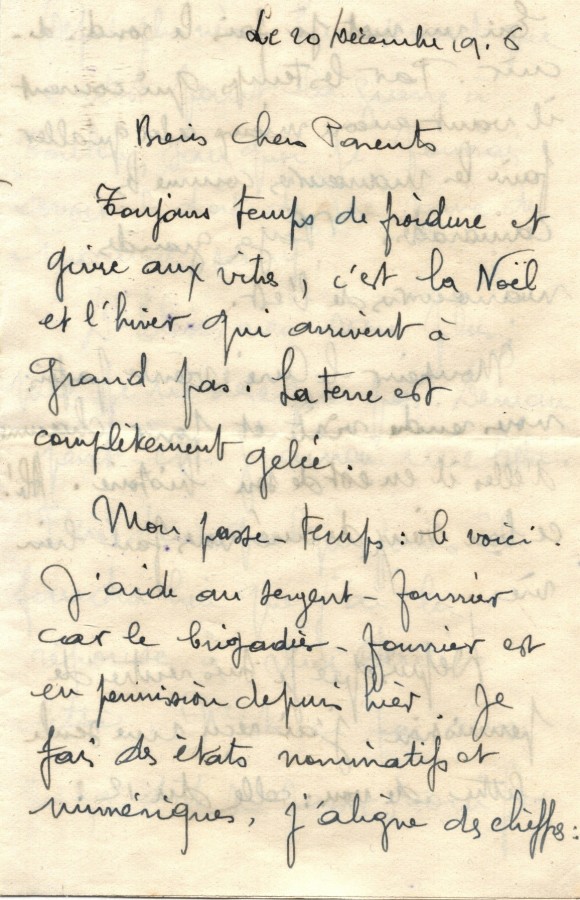 Le 20 Décembre 19.8
Biens Chers Parents
Toujours temps de froidure et
givre aux vitres, c'est la Noël
et l'hiver qui arrivent à
grand pas. La terre est
complètement gelée.
Mon passe-temps : le voici.
J'aide au sergent-fourrier
car le brigadier-fourrier est
en permission depuis hier. Je
fais des états nominatifs et
numériques, j'aligne des chiffres :